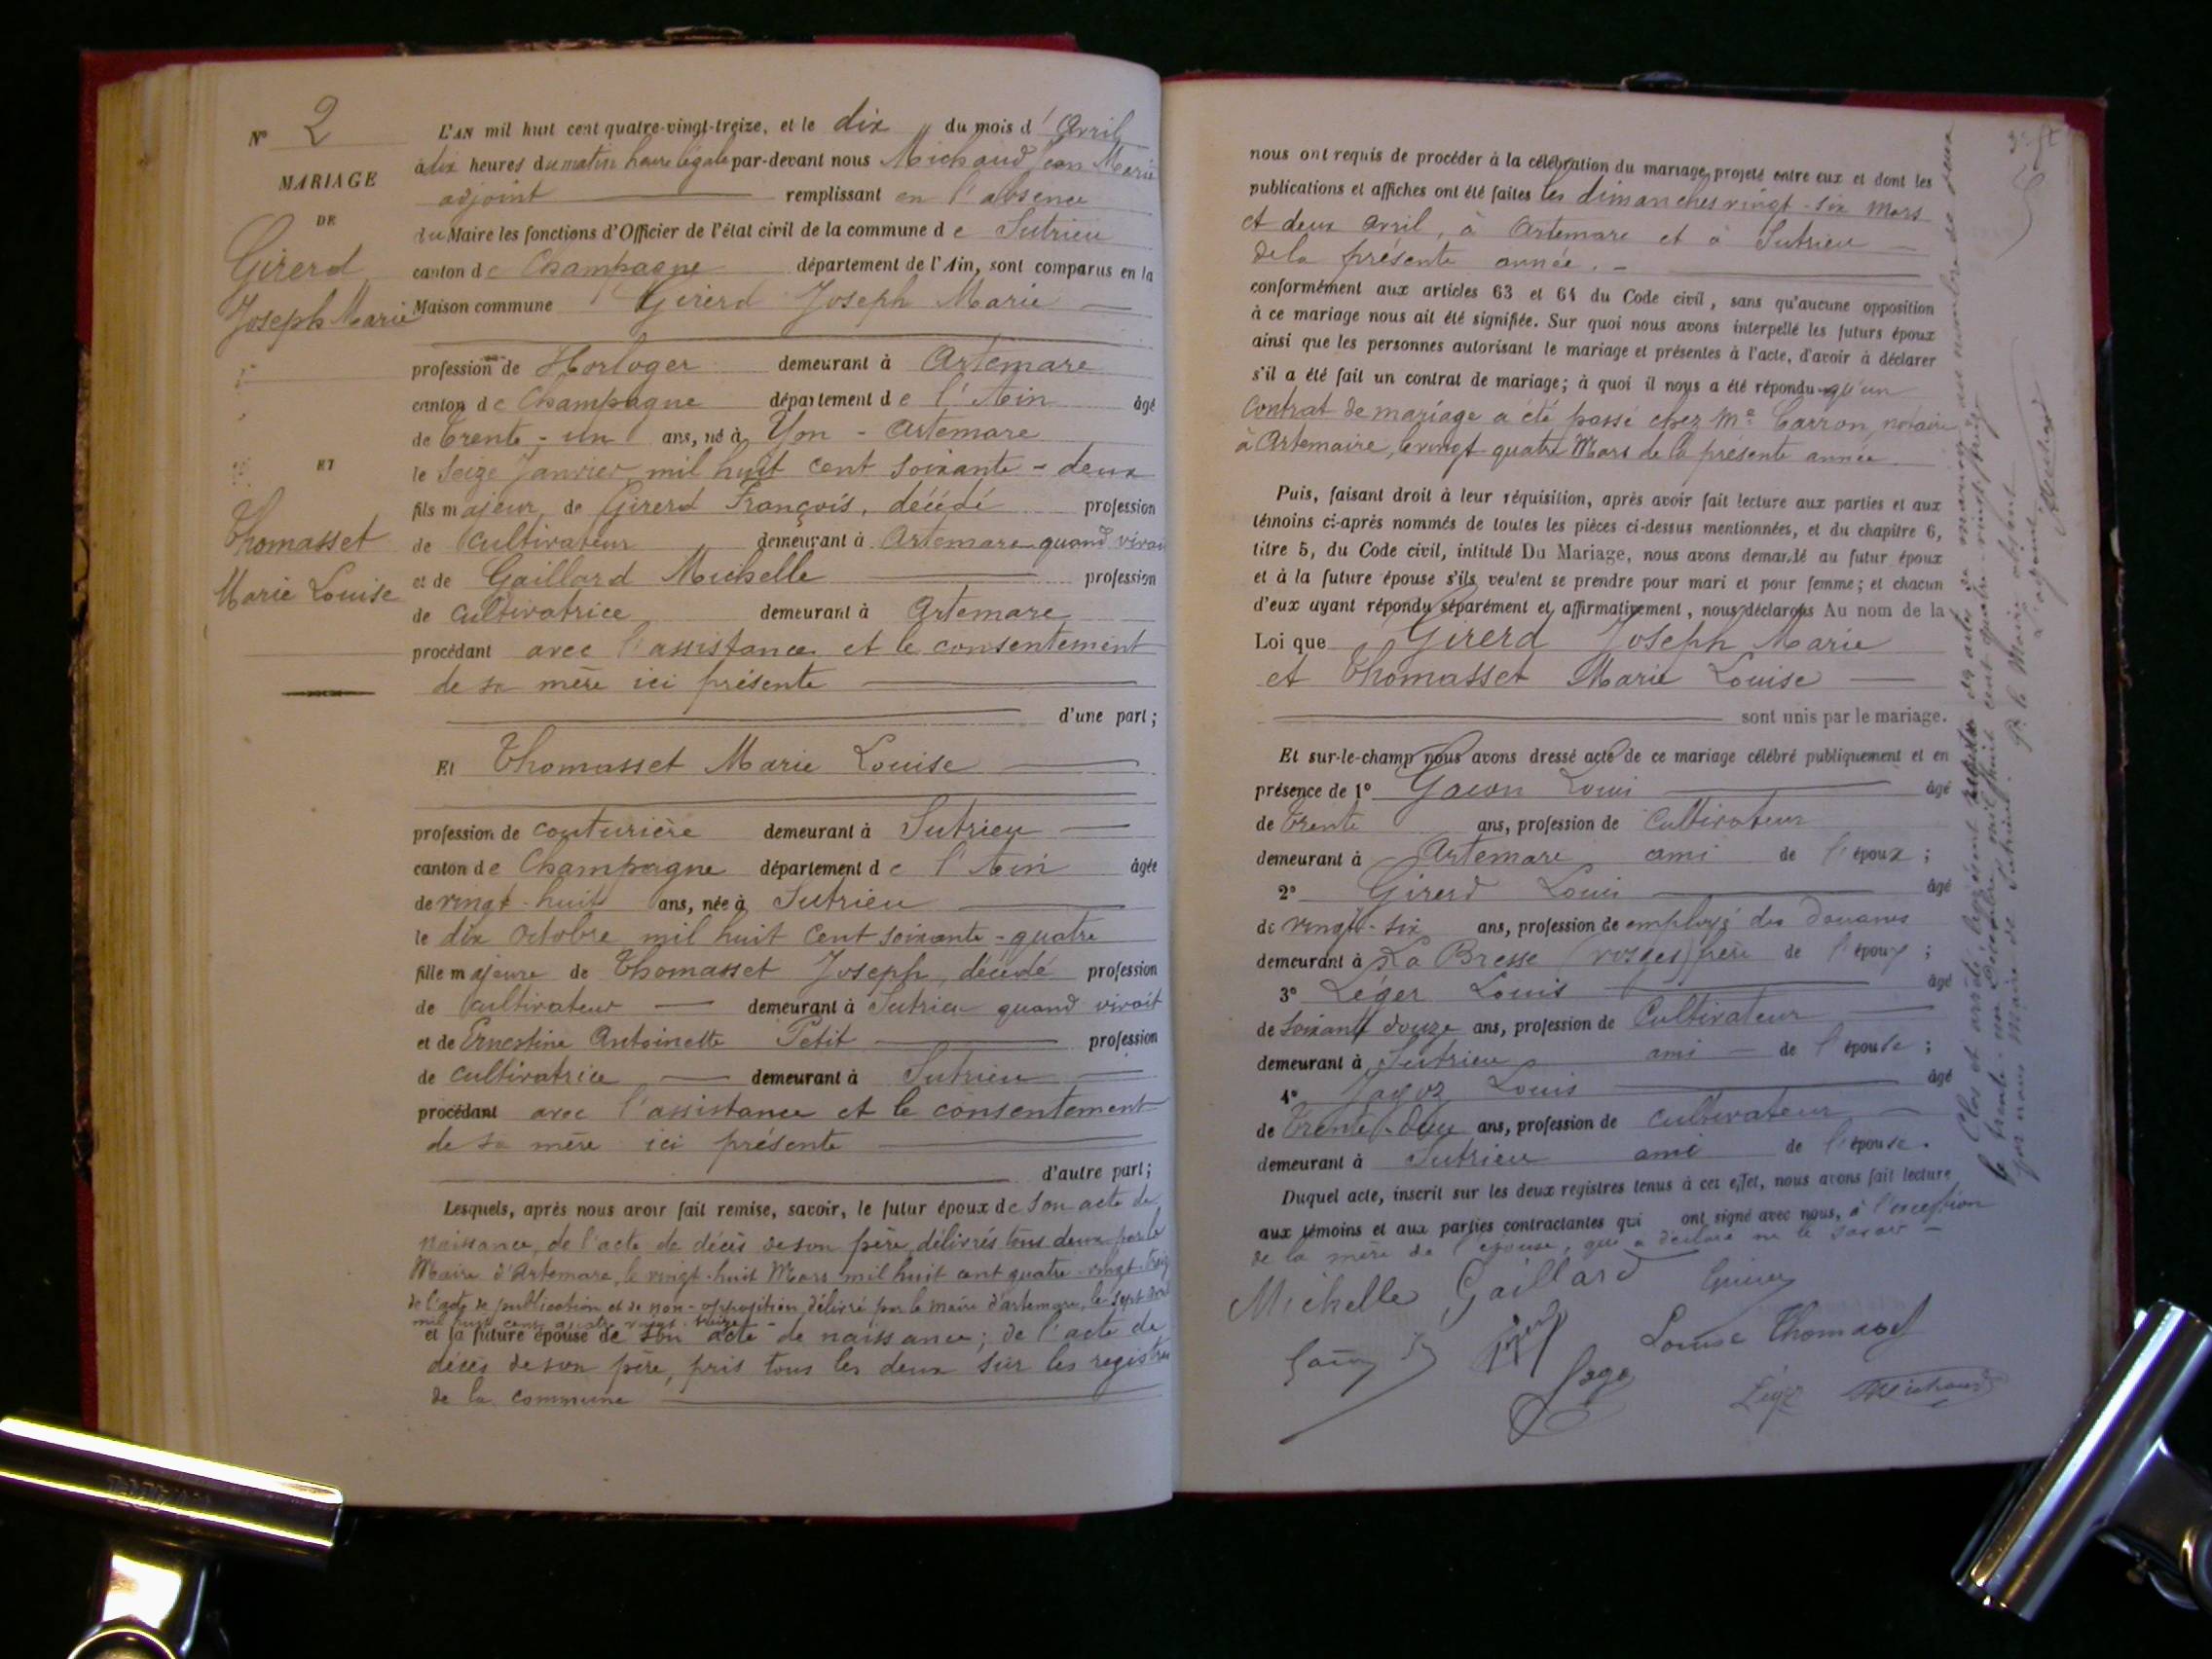 N° 2
MARIAGE
DE
Girerd
Joseph Marie
ET
Thomasset
Marie Louise
L'AN mil huit cent quatre-vingt-treize, et le dix du mois d'Avril
à dix heures du matin heure légale par-devant nous Michaud Jean Marie
adjoint remplissant en l'absence
du Maire les fonctions d'Officier de l'état civil de la commune de Sutrieu
canton de Champagne département de l'Ain, sont comparus en la
Maison commune Girerd Joseph Marie
profession de Horloger demeurant à Artemare
canton de Champagne département de l'Ain âgé
de trente-un ans, né à Yon-Artemare
le Seize Janvier mil huit cent soixante-deux
fils majeur de Girerd François, décédé profession
de Cultivateur demeurant à Artemare quand vivait
et de Gaillard Michelle profession
de Cultivatrice demeurant à Artemare
procédant avec l'assistance et le consentement
de sa mère ici présente
d'une part;
Et Thomasset Marie Louise
profession de couturière demeurant à Sutrieu
canton de Champagne département de l'Ain âgée
de vingt-huit ans, née à Sutrieu
le dix Octobre mil huit cent soixante-quatre
fille majeure de Thomasset Joseph, décédé profession
de Cultivateur demeurant à Sutrieu quand vivait
et de Ernestine Antoinette Petit profession
de cultivatrice demeurant à Sutrieu
procédant avec l'assistance et le consentement
de sa mère ici présente
d'autre part;
Lesquels, après nous avoir fait remise, savoir, le futur époux de son acte de
naissance, de l'acte de décès de son père, délivrés tous deux par le
Maire d'Artemare, le vingt-huit Mars mil huit cent quatre-vingt-treize
de l'acte de publication et de non-opposition, délivré par le maire d'artemare, le sept avril
mil huit cent quatre vingt-treize
et la future épouse de son acte de naissance; de l'acte de
décès de son père, pris tous les deux sur les registres
de la commune
nous ont requis de procéder à la célébration du mariage projeté entre eux et dont les
publications et affiches ont été faites les dimanches vingt-six Mars
et deux avril, à Artemare et à Sutrieu
de la présente année.
conformément aux articles 63 et 64 du Code civil, sans qu'aucune opposition
à ce mariage nous ait été signifiée. Sur quoi nous avons interpellé les futurs époux
ainsi que les personnes autorisant le mariage et présentes à l'acte, d'avoir à déclarer
s'il a été fait un contrat de mariage; à quoi il nous a été répondu qu'un
Contrat de mariage a été passé chez Me Carron, notaire
à Artemaire, le vingt quatre Mars de la présente année
Puis, faisant droit à leur réquisition, après avoir fait lecture aux parties et aux
témoins ci-après nommés de toutes les pièces ci-dessus mentionnées, et du chapitre 6,
titre 5, du Code civil, intitulé Du Mariage, nous avons demandé au futur époux
et à la future épouse s'ils veulent se prendre pour mari et pour femme; et chacun
d'eux ayant répondu séparément et affirmativement, nous déclarons Au nom de la
Loi que Girerd Joseph Marie
et Thomasset Marie Louise
sont unis par le mariage.
Et sur-le-champ nous avons dressé acte de ce mariage célébré publiquement et en
présence de 1° Louis âgé
de trente ans, profession de Cultivateur
demeurant à Artemare ami de l'époux;
2° Girerd Louis âgé
de vingt-six ans, profession de employé des Douanes
demeurant à La Bresse (vosges) frère de l'époux;
3° Léger Louis âgé
de soixante douze ans, profession de Cultivateur
demeurant à Sutrieu ami de l'épouse;
4° Louis âgé
de trente-deux ans, profession de cultivateur
demeurant à Sutrieu ami de l'épouse.
Duquel acte, inscrit sur les deux registres tenus à cet effet, nous avons fait lecture
aux témoins et aux parties contractantes qui ont signé avec nous, à l'exception
de la mère de l'épouse, qui a déclaré ne le savoir
Michelle Gaillard
Louise Thomasset
Léger Michaud
Clos et arrêté le présent registre des actes de mariage au nombre de deux
le trente-un Décembre mil huit cent quatre-vingt-treize
par nous Maire de Sutrieu. Pr. le Maire absent
l'adjoint
Michaud